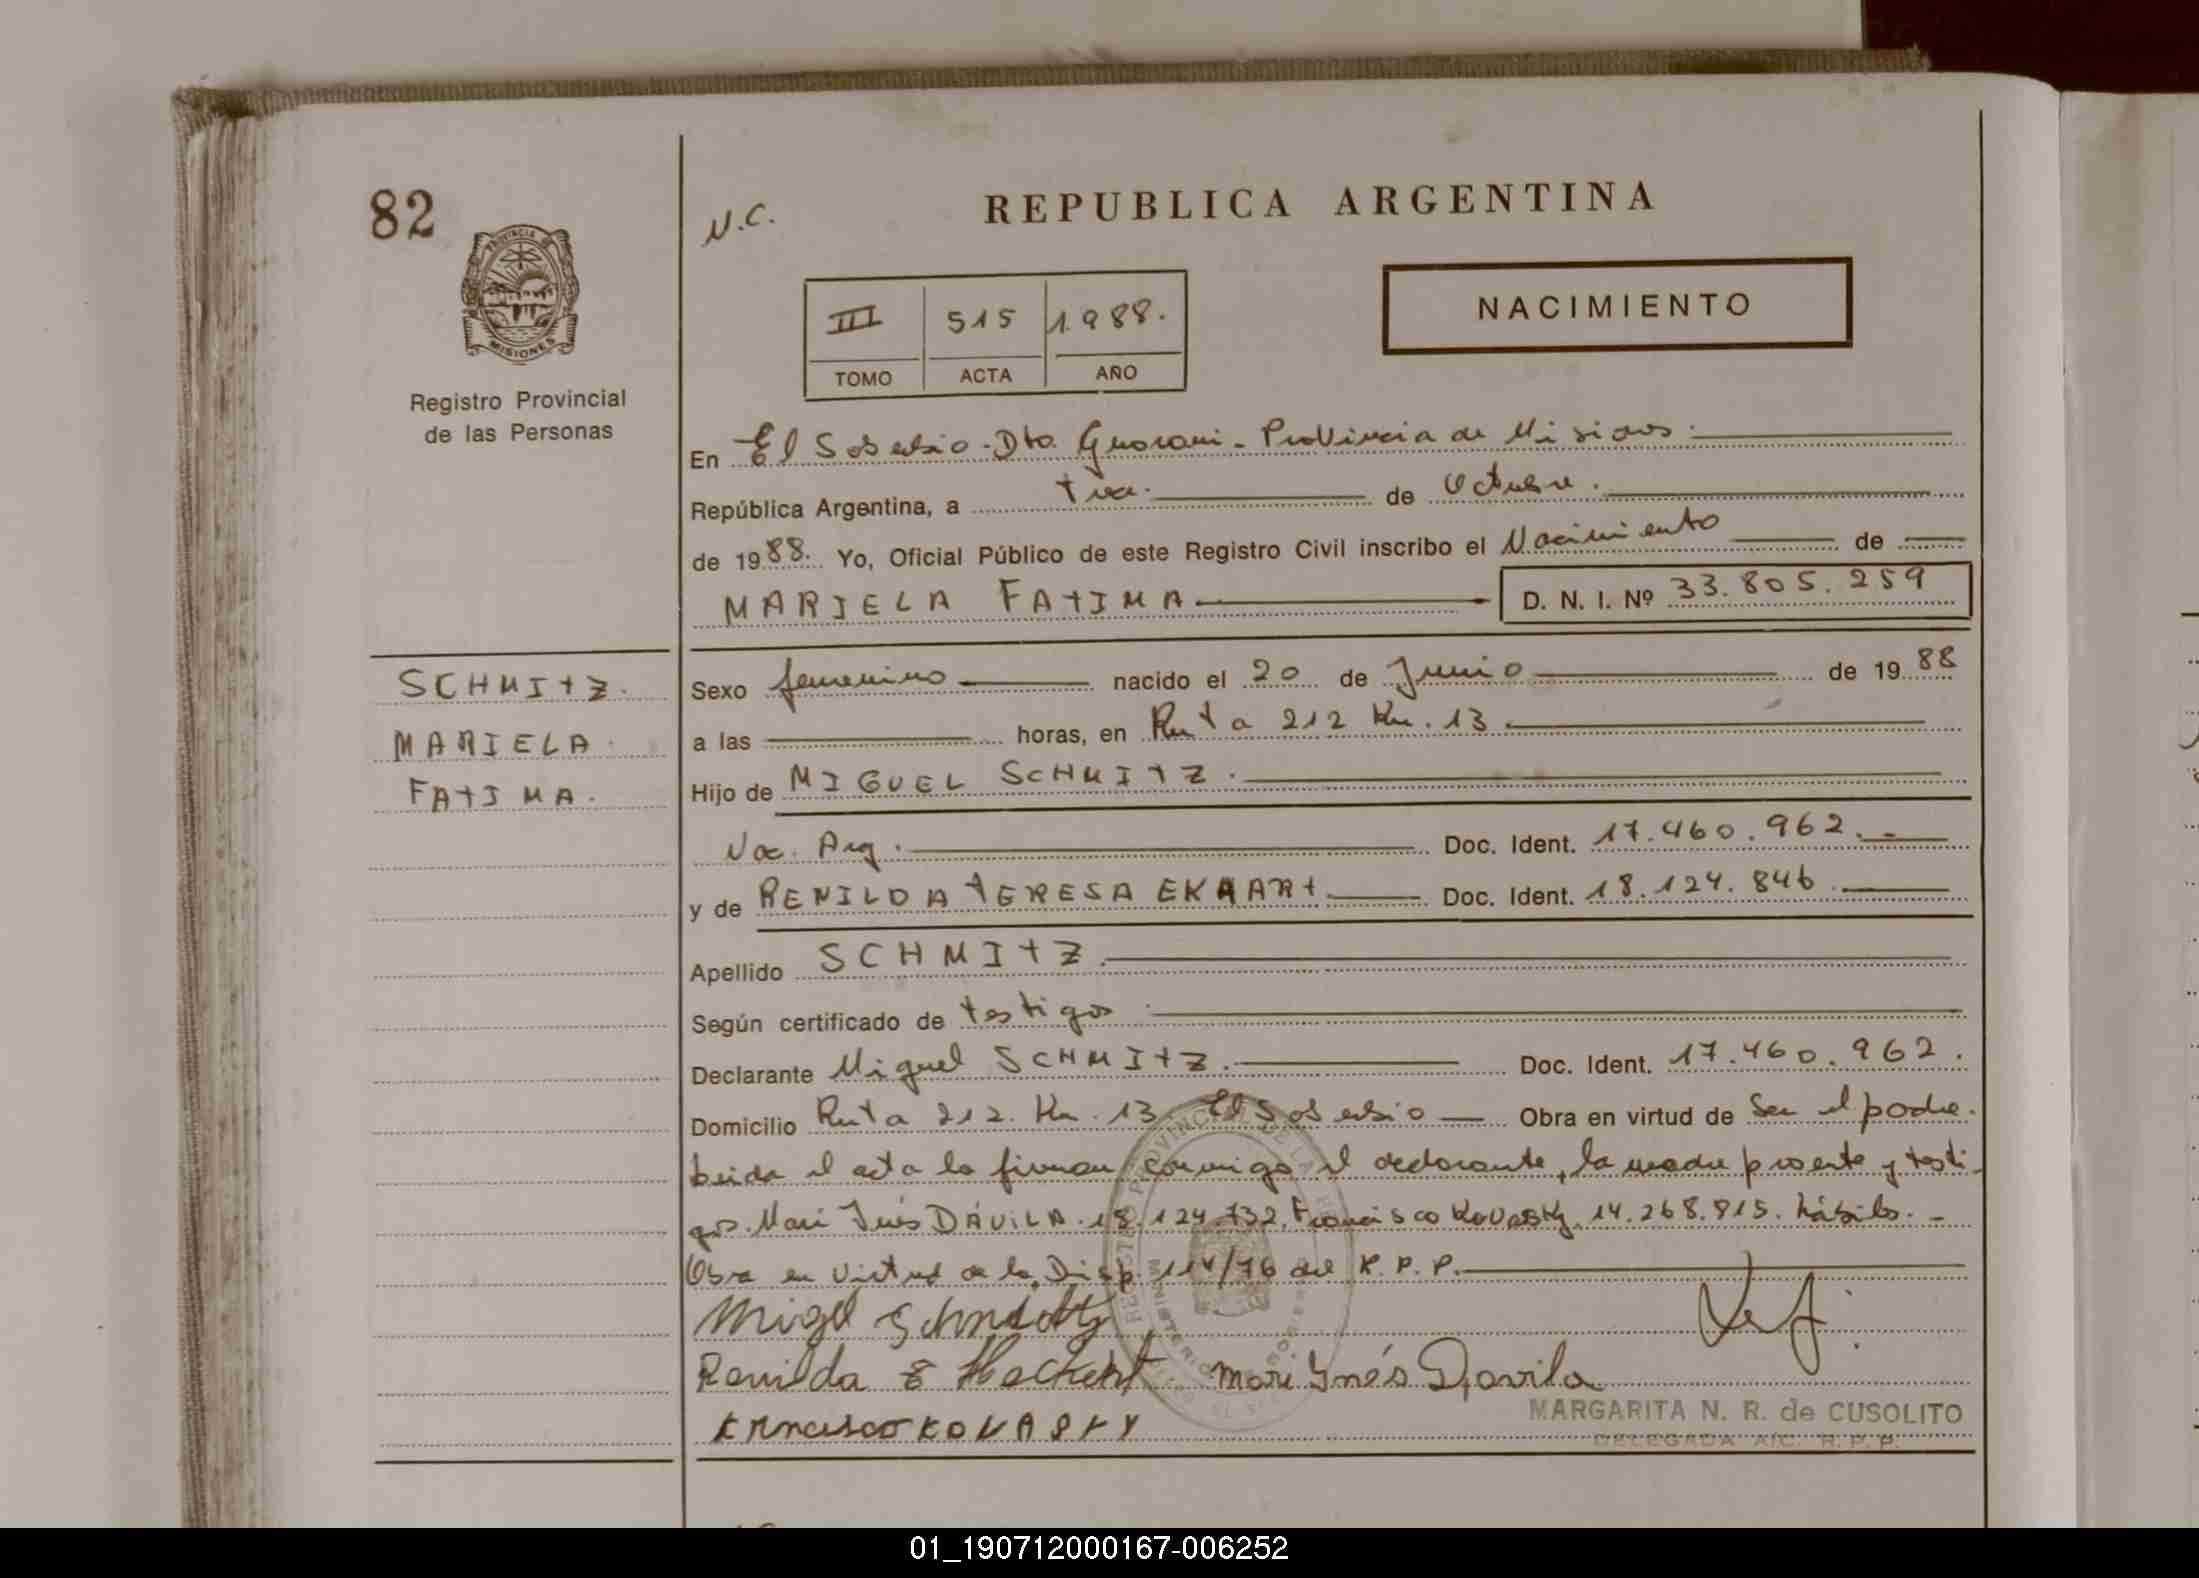 82
N.C.
REPUBLICA ARGENTINA
PROVINCIA
MISIONES
Registro Provincial
de las Personas
III 515 1988.
TOMO ACTA AÑO
NACIMIENTO
En El Soberbio - Dto. Guarani - Provincia de Misiones.
República Argentina, a tres. de Octubre.
de 1988. Yo, Oficial Público de este Registro Civil inscribo el Nacimiento de
MARIELA FATIMA D. N. I. Nº 33.805.259
SCHMITZ.
MARIELA
FATIMA.
Sexo femenino nacido el 20 de Junio de 1988
a las horas, en Ruta 212 Km. 13.
Hijo de MIGUEL SCHMITZ.
Nac. Arg. Doc. Ident. 17.460.962.-
y de RENILDA TERESA EKAART Doc. Ident. 18.124.846.
Apellido SCHMITZ.
Según certificado de testigos
Declarante Miguel SCHMITZ. Doc. Ident. 17.460.962.
Domicilio Ruta 212. Km. 13 El Soberbio Obra en virtud de Ser el padre.
Leida el acta la firman conmigo el declarante, la madre presente y testi-
gos. Mari Inés DÁVILA. 18.124.732, Francisco Kovasky, 14.268.815. hábiles.-
Obra en virtud de la Disp. 114/76 del R.P.P.
Migel Schmidtz
Renilda E Heckert Mari Ynés Davila
Francisco KOVASKY
MARGARITA N. R. de CUSOLITO
DELEGADA A/C. R. P. P.
01_190712000167-006252